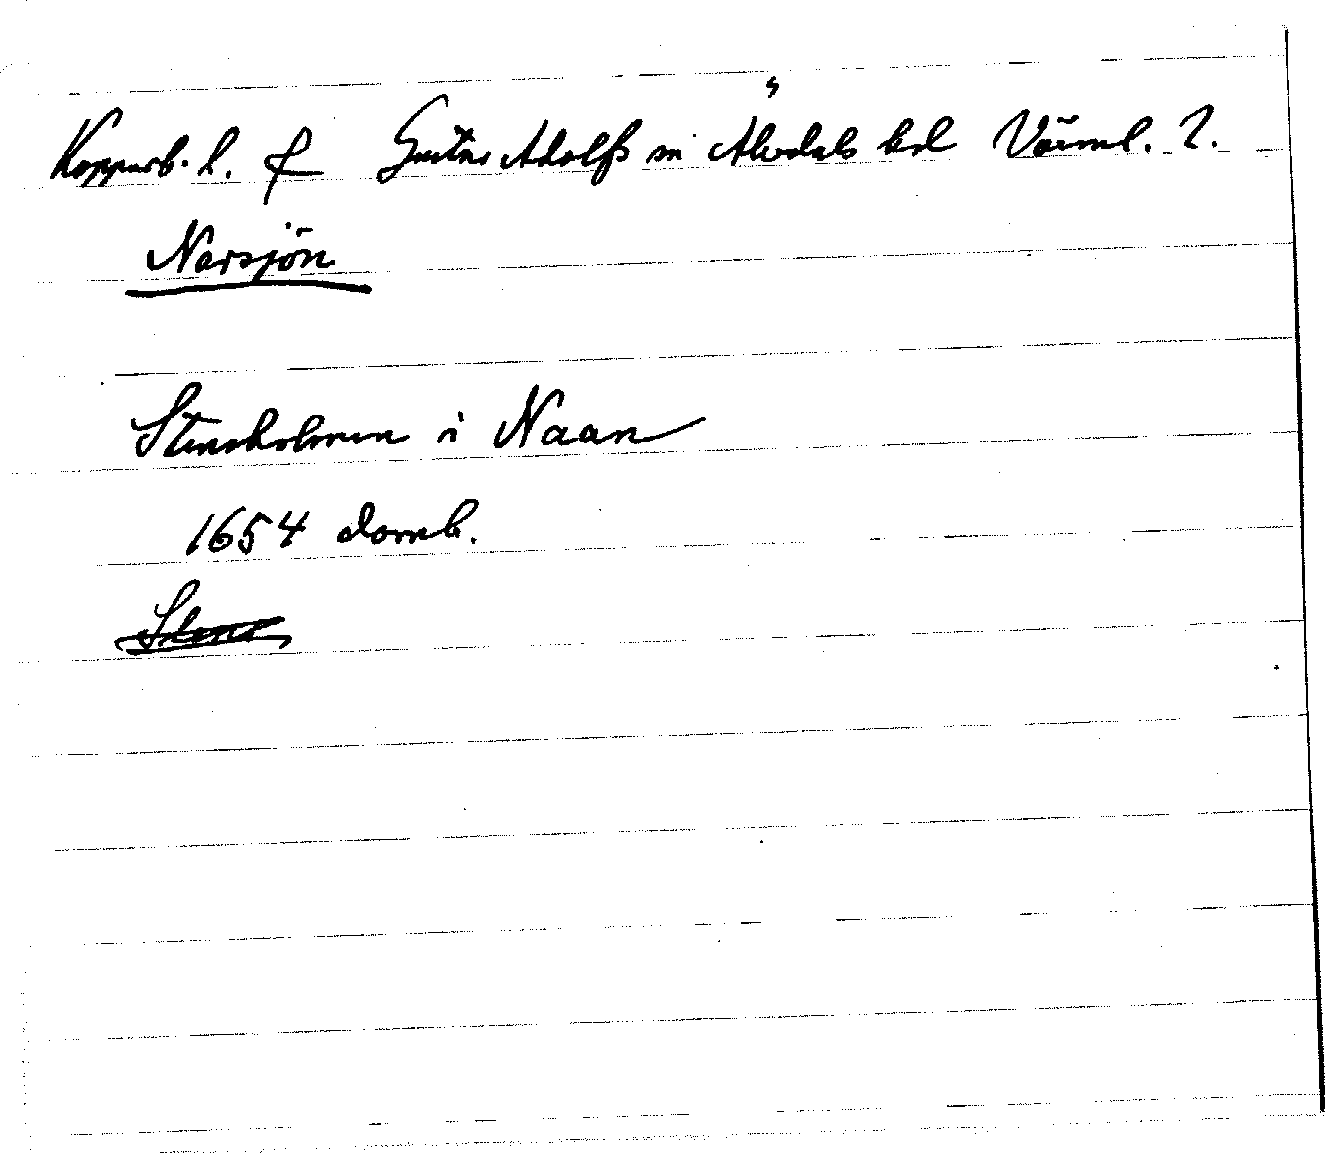 Kopparb. l. f Gustav Adolfs sn Älvdals hd Värml. l.
Narsjön
Stensholmen i Naan
1654 domb.
Stens